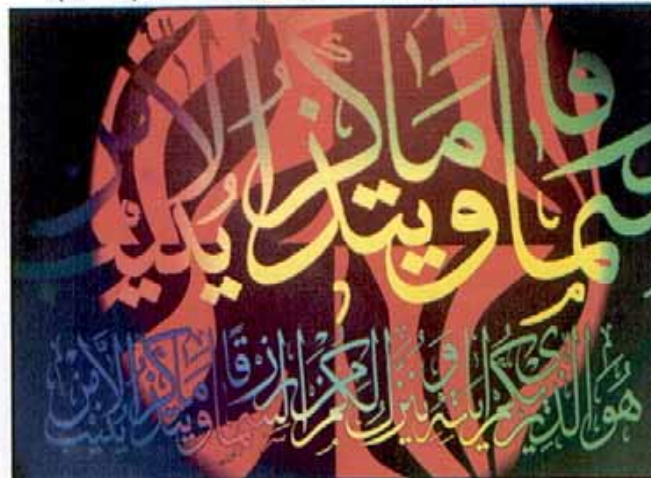 قا وما يتذكر الا من ينيب
هُوَ الذي يريكم ايته وينزل لكم من السما رزقًا وما يتذكر الا من ينيب